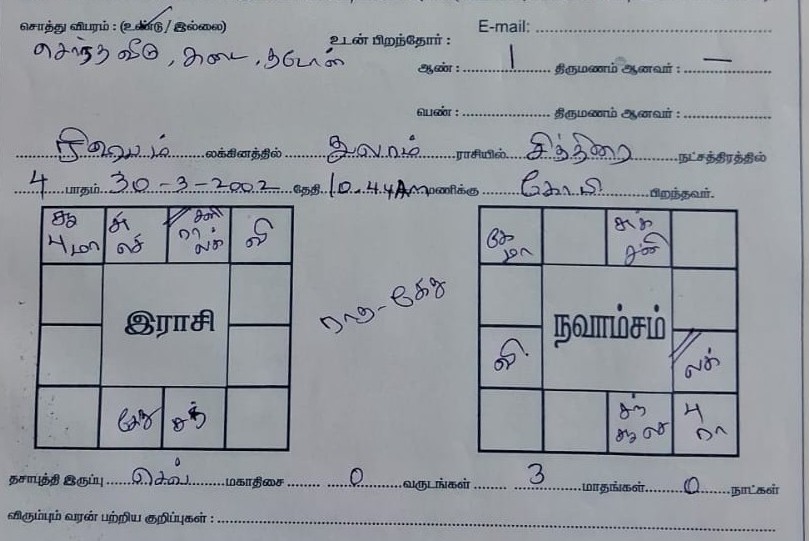 சொத்து விபரம் : (உண்டு / இல்லை)
E-mail:
சொந்த வீடு, கடை,
உடன் பிறந்தோர் :
ஆண் : 1 திருமணம் ஆனவர் : —
பெண் : திருமணம் ஆனவர் :
ரிஷபம் லக்கினத்தில் துலாம் ராசியில் சித்திரை நட்சத்திரத்தில்
4 பாதம் 30-3-2002 தேதி 10.44AM மணிக்கு கோபி பிறந்தவர்.
சூ சு சனி வி கே சுக்
பு மா செ ரா லக் மா சனி
இராசி ராகு-கேது நவாம்சம்
வி. லக்
கேது சந் சந் பு
சூ செ ரா
தசாபுத்தி இருப்பு செவ் மகாதிசை 0 வருடங்கள் 3 மாதங்கள் 0 நாட்கள்
விரும்பும் வரன் பற்றிய குறிப்புகள் :